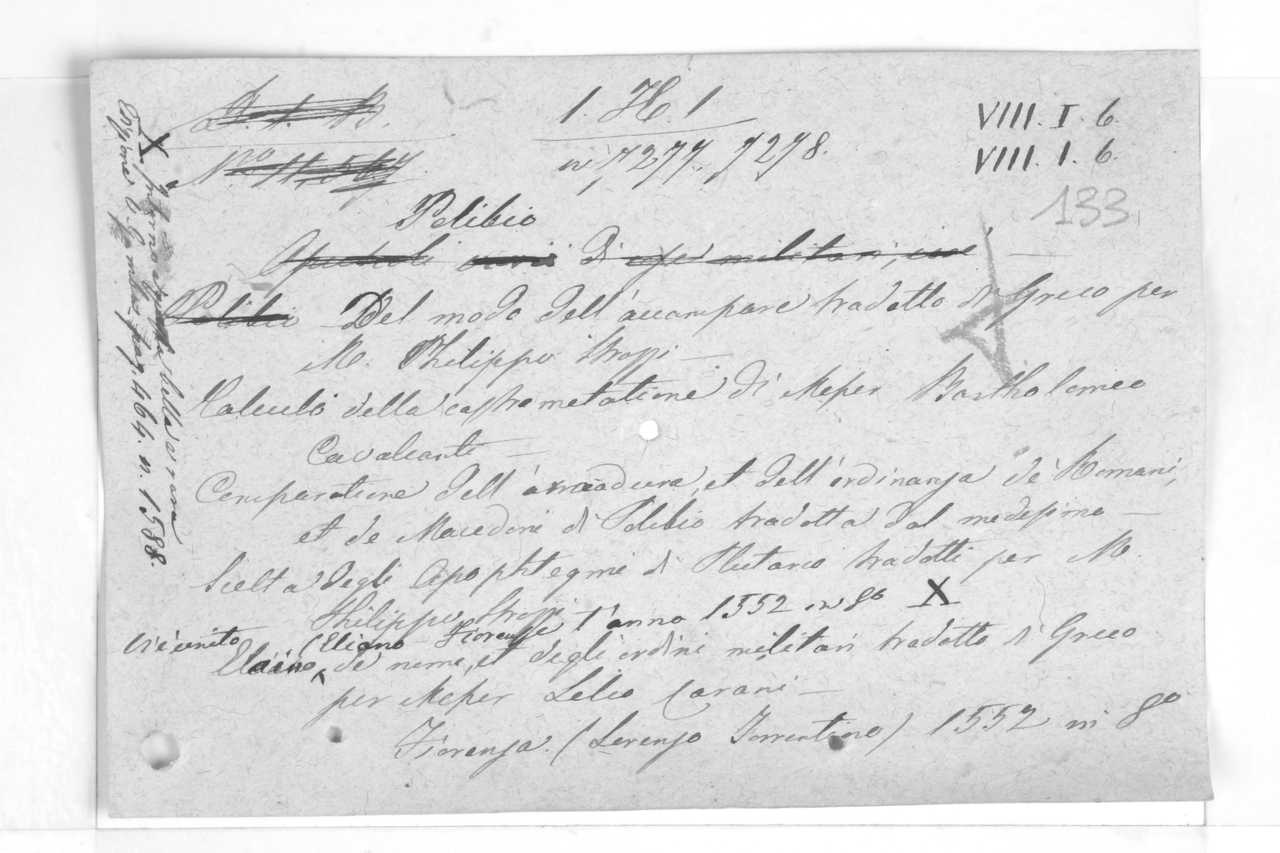 D. 1. B.
1. H. 1
VIII. I. 6.
No 11,547
ni 7277. 7278.
VIII. I. 6.
133
Polibio
Opuscoli varii di cose militari, cioè
Polibio Del modo dell'accampare tradotto di Greco per
M. Philippo Strozzi —
Calculo della castrametatione di Messer Bartholomeo
Cavalcanti —
Comparatione dell'armadura, et dell'ordinanza de Romani,
et de Macedoni di Polibio tradotta dal medesimo —
Scelta degli Apophtegmi di Plutarco tradotti per M.
Philippo Strozzi Fiorenze l'anno 1552 in 8o X
Vi è unito
(Eliano
Eliano, de nomi, et degli ordini militari tradotto di Greco
per Messer Lelio Carani —
Fiorenza. (Lorenzo Torrentino) 1552 in 8o
X
pag. 464. n. 1588.